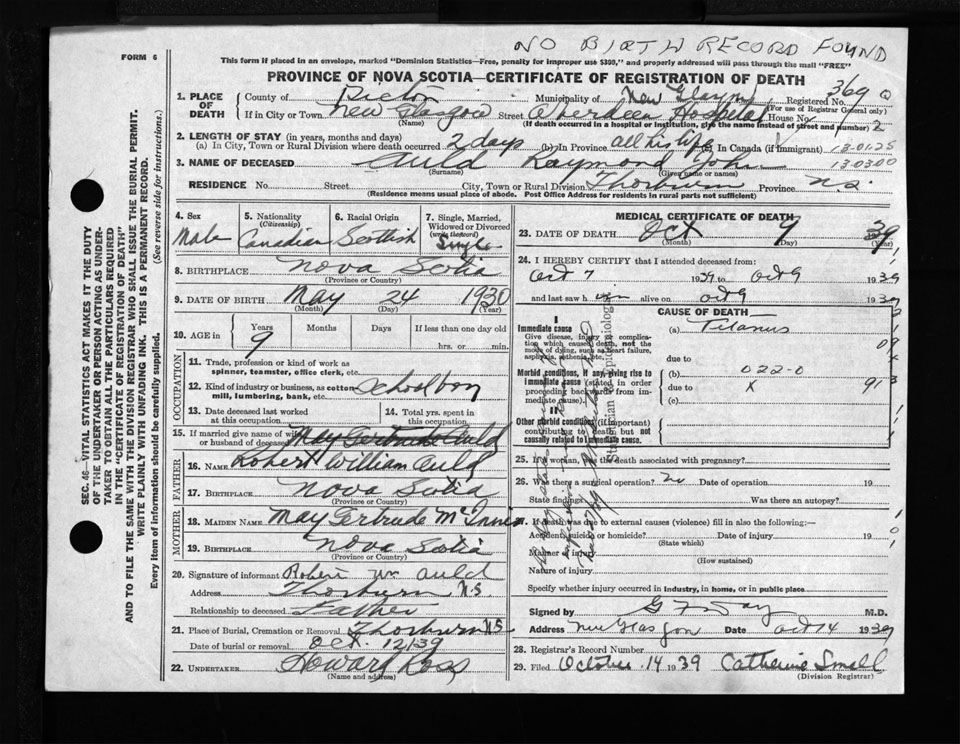 NO BIRTH RECORD FOUND
FORM 6
This form if placed in an envelope, marked "Dominion Statistics—Free, penalty for improper use $300," and properly addressed will pass through the mail "FREE"
PROVINCE OF NOVA SCOTIA—CERTIFICATE OF REGISTRATION OF DEATH
369
1. PLACE OF DEATH
County of Pictou Municipality of New Glasgow Registered No.
(For use of Registrar General only)
If in City or Town New Glasgow Street Aberdeen Hospital House No.
(Name) (If death occurred in a hospital or institution, give the name instead of street and number)
2. LENGTH OF STAY (in years, months and days)
(a) In City, Town or Rural Division where death occurred 2 days (b) In Province all his life (c) In Canada (if immigrant) 13-01-25
3. NAME OF DECEASED Auld Raymond John 13-03-00
(Surname) (Given name or names)
RESIDENCE No. Street City, Town or Rural Division Thorburn Province N.S.
(Residence means usual place of abode. Post Office Address for residents in rural parts not sufficient)
4. Sex Male
5. Nationality (Citizenship) Canadian
6. Racial Origin Scottish
7. Single, Married, Widowed or Divorced (write the word) Single
8. BIRTHPLACE Nova Scotia
(Province or Country)
9. DATE OF BIRTH May 24 1930
(Month) (Day) (Year)
10. AGE in Years 9 Months Days If less than one day old
hrs. or min.
OCCUPATION
11. Trade, profession or kind of work as spinner, teamster, office clerk, etc.
12. Kind of industry or business, as cotton mill, lumbering, bank, etc. Schoolboy
13. Date deceased last worked at this occupation
14. Total yrs. spent in this occupation
15. If married give name of wife or husband of deceased May Gertrude Auld
FATHER
16. NAME Robert William Auld
17. BIRTHPLACE Nova Scotia
(Province or Country)
MOTHER
18. MAIDEN NAME May Gertrude McInnis
19. BIRTHPLACE Nova Scotia
(Province or Country)
20. Signature of informant Robert Wm Auld
Address Thorburn N.S.
Relationship to deceased Father
21. Place of Burial, Cremation or Removal Thorburn N.S.
Date of burial or removal Oct. 12/39
22. UNDERTAKER Howard Ross
(Name and address)
MEDICAL CERTIFICATE OF DEATH
23. DATE OF DEATH Oct 9 39
(Month) (Day) (Year)
24. I HEREBY CERTIFY that I attended deceased from:
Oct 7 1939 to Oct 9 1939
and last saw him alive on Oct 9 1939
CAUSE OF DEATH
I
Immediate cause
Give disease, injury or complication which caused death, not the mode of dying, such as heart failure, asphyxia, asthenia, etc.
(a) Tetanus
due to
Morbid conditions, if any, giving rise to immediate cause (stated in order proceeding backwards from immediate cause).
(b) 022-0
due to X
(c)
II
Other morbid conditions (if important) contributing to death but not causally related to immediate cause.
25. If a woman, was the death associated with pregnancy?
26. Was there a surgical operation? No Date of operation 19
State findings Was there an autopsy?
27. If death was due to external causes (violence) fill in also the following:—
Accident, suicide or homicide? Date of injury 19
(State which)
Manner of injury
(How sustained)
Nature of injury
Specify whether injury occurred in industry, in home, or in public place
Signed by G F Day M.D.
Address New Glasgow Date Oct 14 1939
28. Registrar's Record Number
29. Filed October 14 1939 Catherine Small
(Division Registrar)
SEC. 46—VITAL STATISTICS ACT MAKES IT THE DUTY OF THE UNDERTAKER OR PERSON ACTING AS UNDERTAKER TO OBTAIN ALL THE PARTICULARS REQUIRED IN THE "CERTIFICATE OF REGISTRATION OF DEATH" AND TO FILE THE SAME WITH THE DIVISION REGISTRAR WHO SHALL ISSUE THE BURIAL PERMIT.
WRITE PLAINLY WITH UNFADING INK. THIS IS A PERMANENT RECORD.
Every item of information should be carefully supplied. (See reverse side for instructions.)